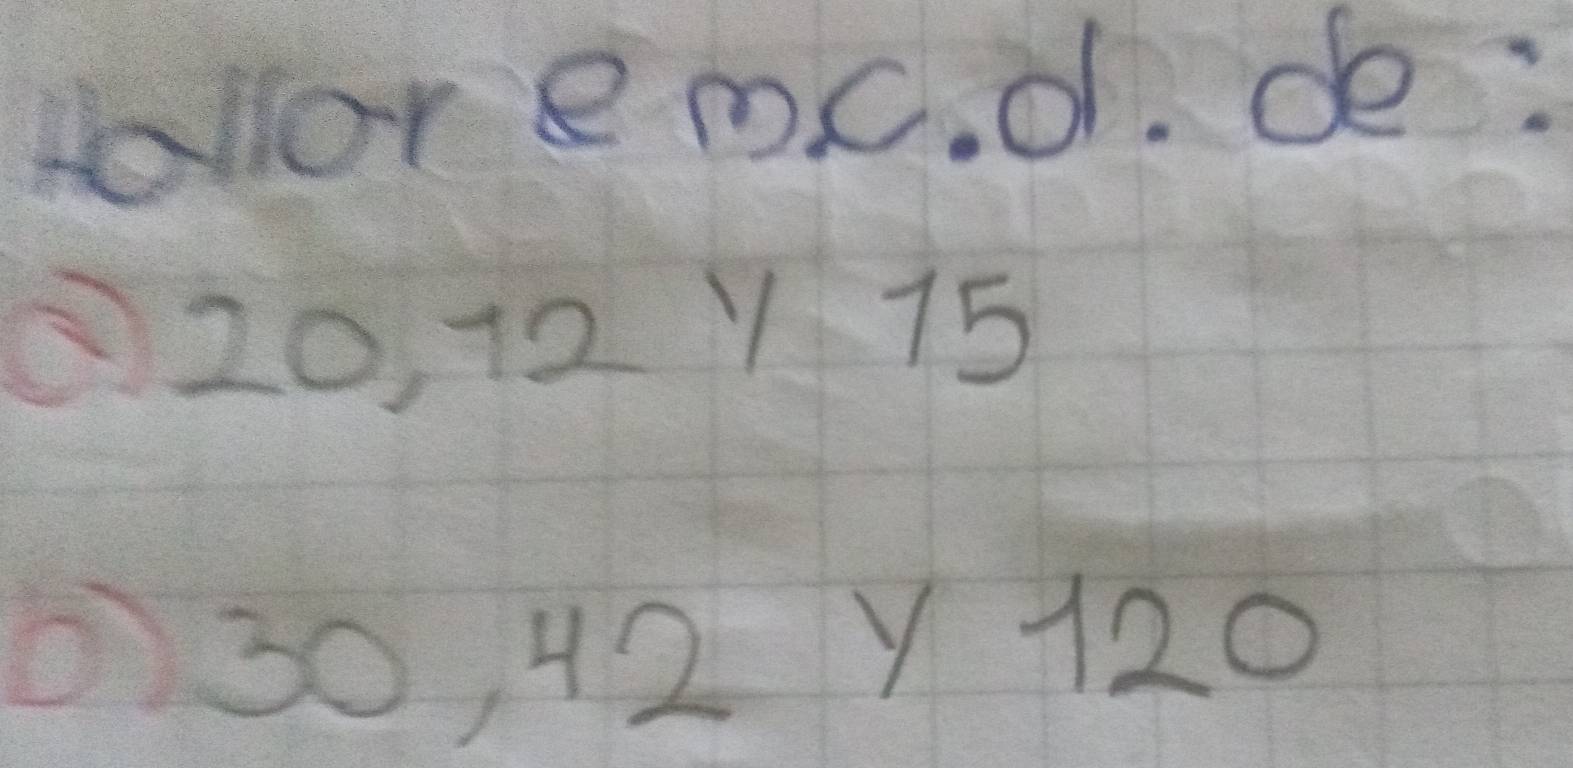 Hallar e m.c.d. de:
a) 20, 12 y 15
b) 30, 42 y 120